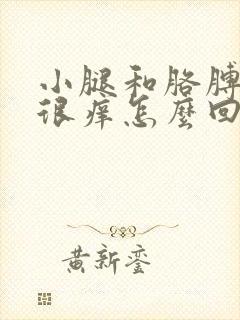 小腿和胳膊
很痒怎麼回
黄新銮